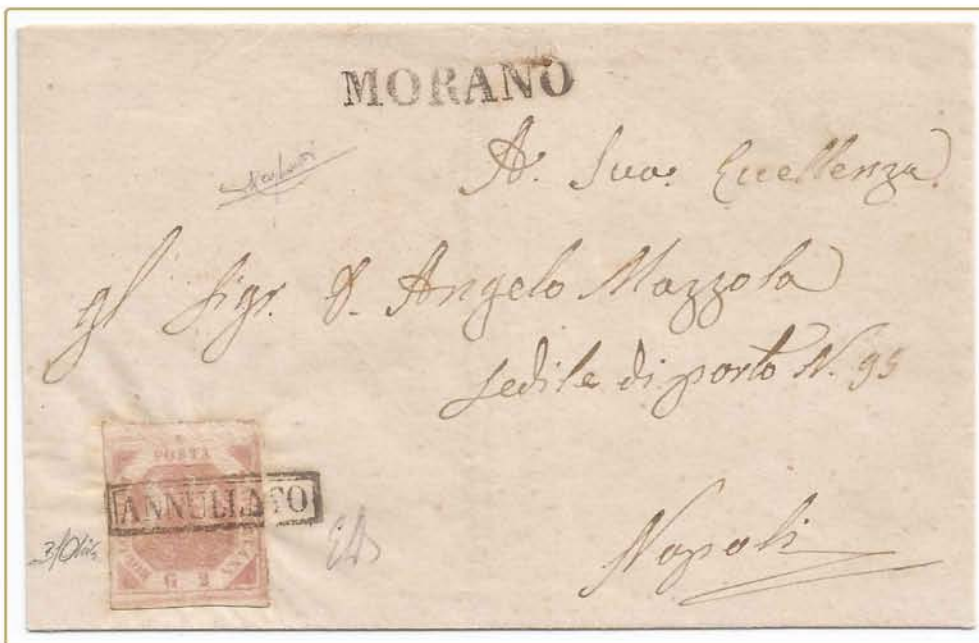 MORANO
A. Sua. Eccellenza
gl Sigr. D. Angelo Mazzola
Sedile di porto N. 95
Napoli
POSTA
ANNULLATO
G 2